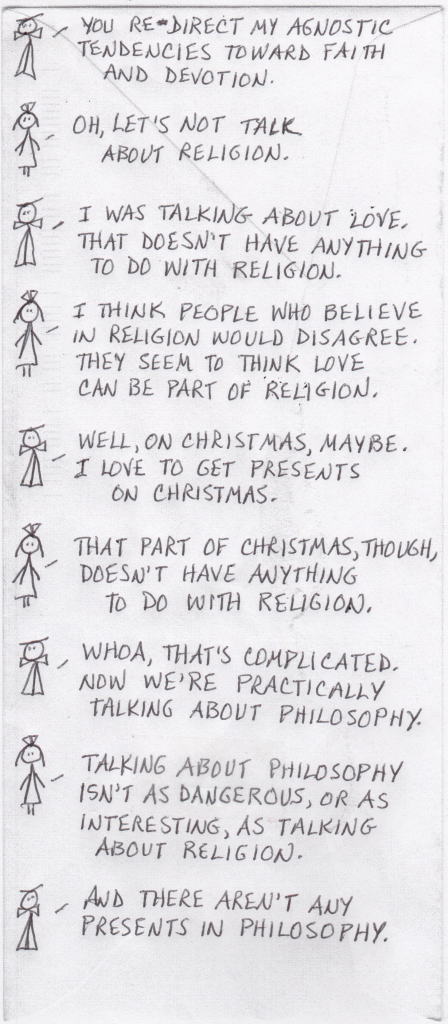 YOU RE-DIRECT MY AGNOSTIC
TENDENCIES TOWARD FAITH
AND DEVOTION.
OH, LET'S NOT TALK
ABOUT RELIGION.
I WAS TALKING ABOUT LOVE.
THAT DOESN'T HAVE ANYTHING
TO DO WITH RELIGION.
I THINK PEOPLE WHO BELIEVE
IN RELIGION WOULD DISAGREE.
THEY SEEM TO THINK LOVE
CAN BE PART OF RELIGION.
WELL, ON CHRISTMAS, MAYBE.
I LOVE TO GET PRESENTS
ON CHRISTMAS.
THAT PART OF CHRISTMAS, THOUGH,
DOESN'T HAVE ANYTHING
TO DO WITH RELIGION.
WHOA, THAT'S COMPLICATED.
NOW WE'RE PRACTICALLY
TALKING ABOUT PHILOSOPHY.
TALKING ABOUT PHILOSOPHY
ISN'T AS DANGEROUS, OR AS
INTERESTING, AS TALKING
ABOUT RELIGION.
AND THERE AREN'T ANY
PRESENTS IN PHILOSOPHY.